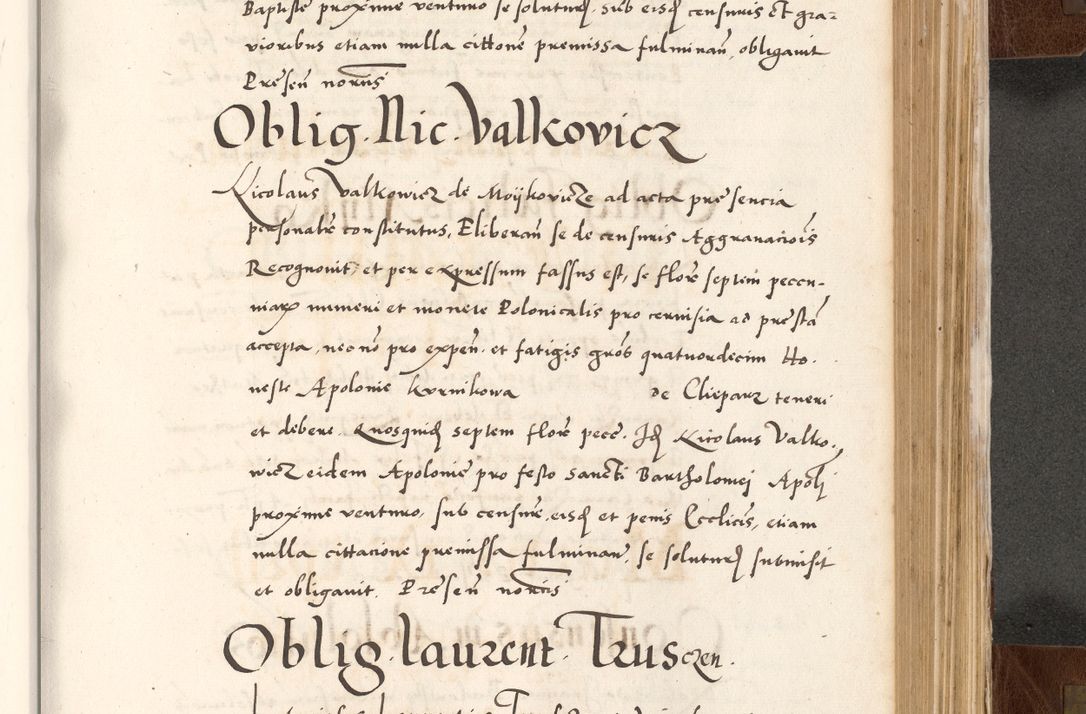 Baptiste proxime venturo se soluturꝭ. sub eisdꝭ censuris et gra-
vioribus etiam nulla cittone premissa fulminan̄, obligavit
Presen̄ nor̄ns
Oblig. Nic. Valkovicz
Nicolaus Valkowicz de Moijkovicze ad acta presencia
personalr̄ constitutus, Eliberan̄ se de censuris Aggravaciois
Recognovit, et per expressum fassus est, se flore septem peccu-
niarꝝ numeri et monete Polonicalis pro cervisia ad prestā
accepta, necnō pro expen̄. et fatigis gros̄ quatuordecim Ho.
neste Apolonie Kvrnikowa de Clieparz teneri
et debere. Quosquidꝭ septem flore pecc̄. Idꝭ Nicolaus Valko.
wicz eidem Apolonie pro festo sancti Bartholomej Apolj
proxime venturo, sub censure. eisdꝭ et penis Ecclicis, etiam
nulla cittacione premissa fulminan̄, se soluturꝭ submisit
et obligavit. Presen̄ nor̄cis
Oblig. laurent. Trusczen.